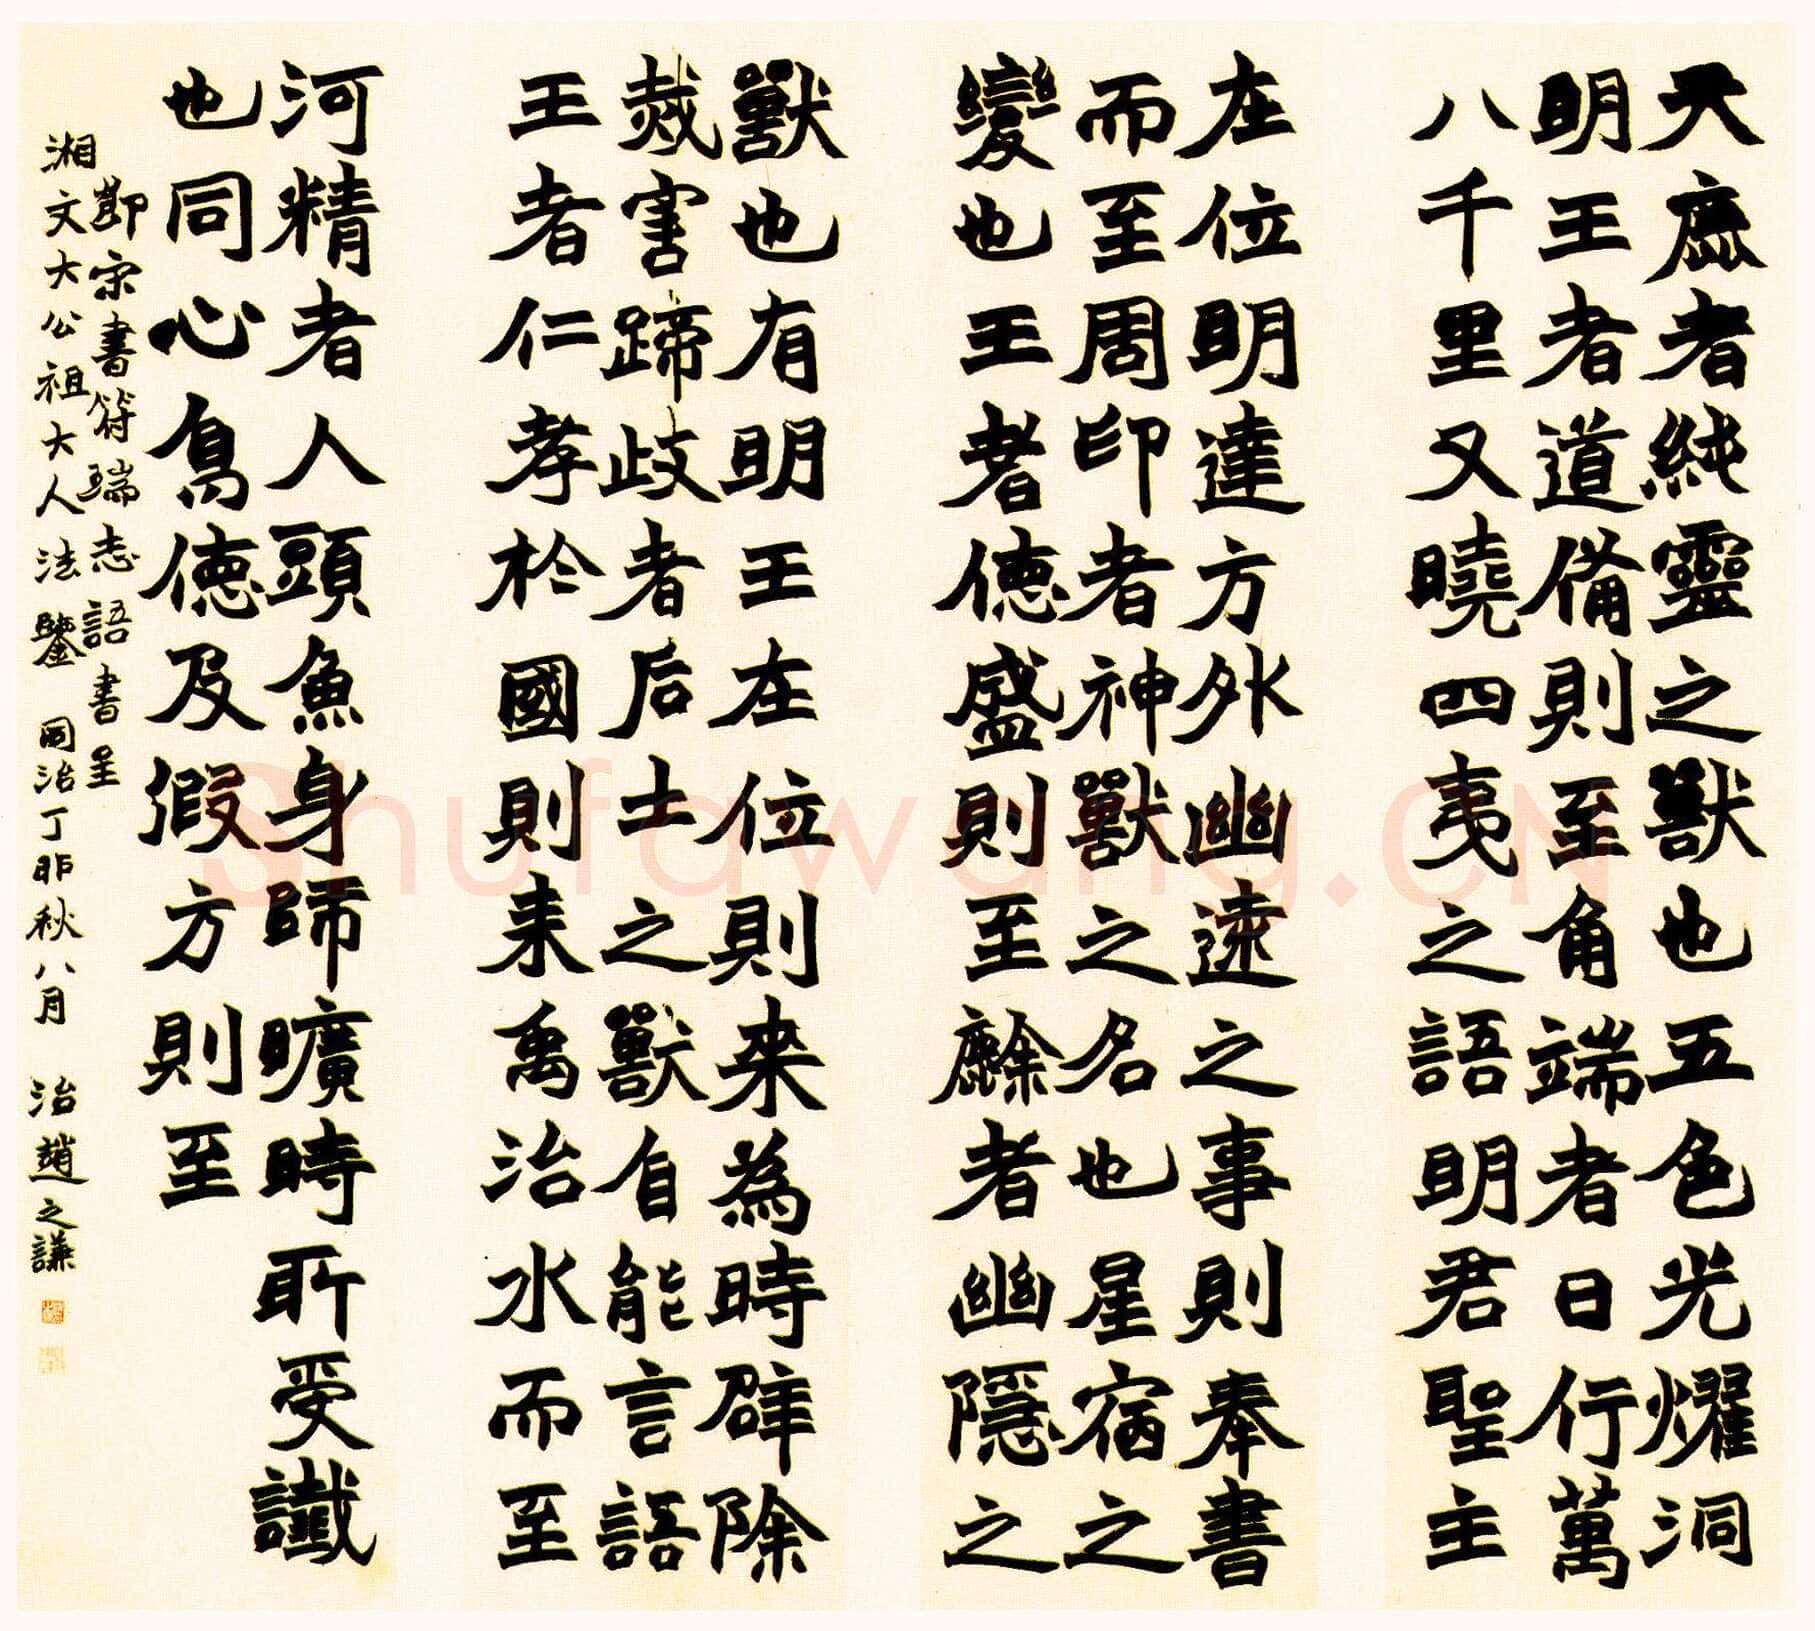 天鹿者純靈之獸也五色光燿洞
明王者道備則至角端者日行萬
八千里又曉四夷之語明君聖主
在位明達方外幽遠之事則奉書
而至周印者神獸之名也星宿之
變也王者德盛則至䴋者幽隱之
獸也有明王在位則来為時辟除
烖害蹏歧者后土之獸自能言語
王者仁孝於國則来禹治水而至
河精者人頭魚身師曠時所受讖
也同心鳥德及假方則至
節宋書符瑞志語書呈
湘文大公祖大人法鑒 同治丁卯秋八月 治趙之謙
Shufawang.CN